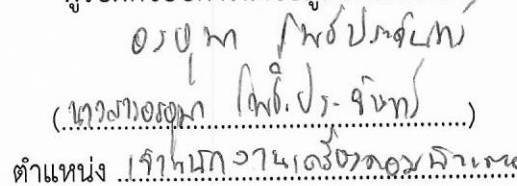 อรอุมา โพธิ์ประจันทร์
(นางสาวอรอุมา โพธิ์ประจันทร์)
ตำแหน่ง เจ้าพนักงานเครื่องคอมพิวเตอร์